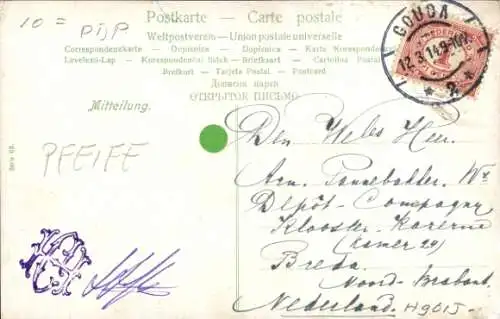 10 = PIJP
Postkarte — Carte postale
Weltpostverein — Union postale universelle
Correspondenzkarte — Dopisnice — Karta Korespondencyjna
Levelezö-Lap — Korespondenční lístek — Briefkaart — Cartolina Postale
Brefkort — Tarjeta Postal — Postcard
ОТКРЫТОЕ ПИСЬМО
Mitteilung.
GOUDA
12.3.14.9-10V
* 2 *
PFEIFE
Den Weles Heer.
Arn. Pannebakker. Wz
Depôt - Compagny
Klooster - Kazerne
(Kamer 29)
Breda.
Noord-Brabant.
Nederland.
H9015